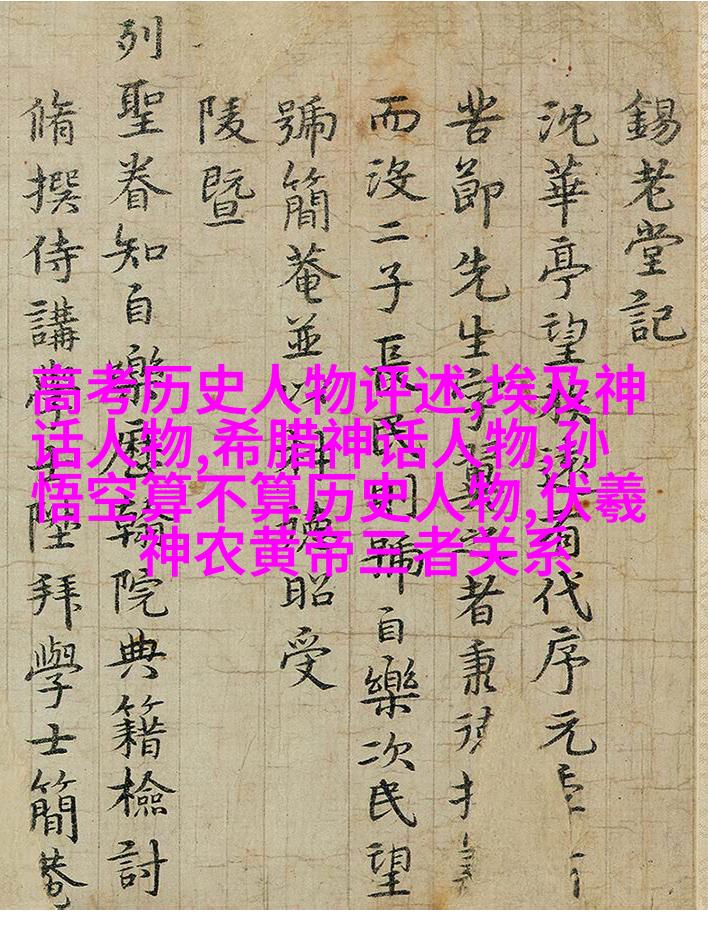 錫老堂記
沈華亭望族遠有代序元
苦節先生字者秉
而沒二子長民則號自樂次民望
號簡菴並以昭受
陵暨
列聖眷知自樂歷翰院典籍檢討
脩撰侍講學士陞拜學士簡菴
高考历史人物评述,埃及神
话人物,希腊神话人物,孙
悟空算不算历史人物,伏羲
神农黄帝三者关系